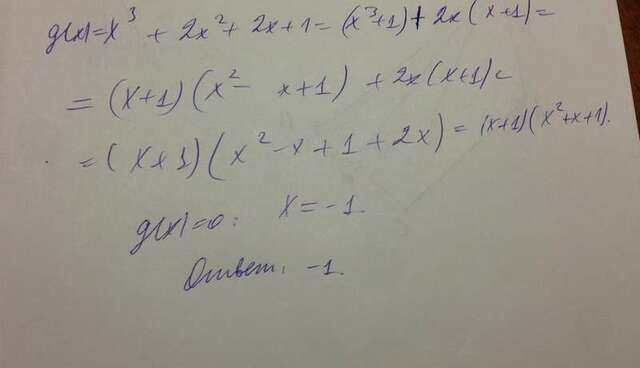 g(x)=x³ + 2x² + 2x+1 = (x³+1) + 2x(x+1) =
= (x+1)(x² - x+1) + 2x(x+1) =
= (x+1)(x² - x + 1 + 2x) = (x+1)(x²+x+1).
g(x)=0: x = -1.
Ответ: -1.